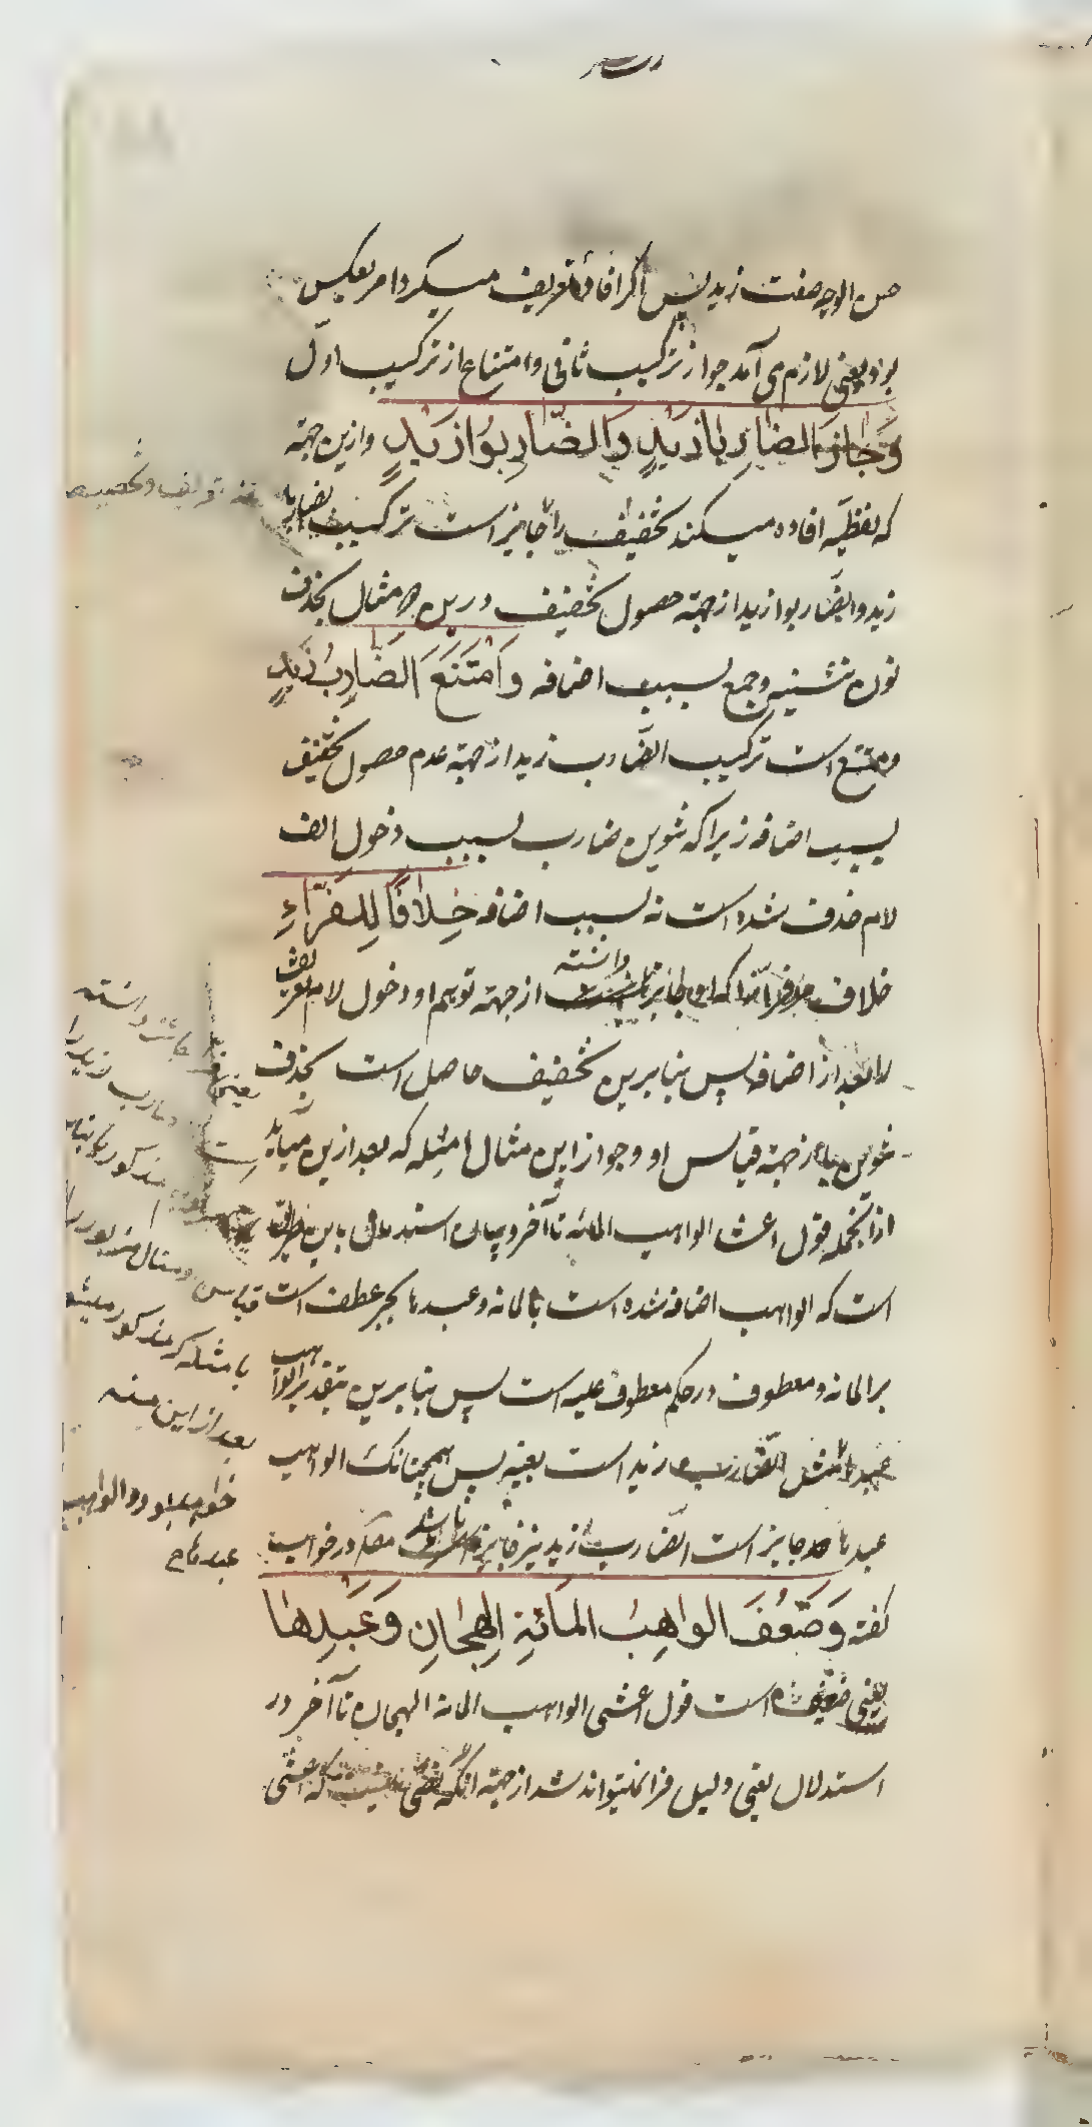 حسن الوجه صفت زید پس اگر افادهٔ تعریف میکرد امر بعکس
بود یعنی لازم می آمد جواز ترکیب ثانی و امتناع از ترکیب اول
وَجَازَ الضَارِبَا زَیْدٍ وَالضَّارِبُوا زَیْدٍ و ازین جهة
که لفظیّه افاده میکند تخفیف را جایز است ترکیب الضاربا
زید و الضّاربوا زید از جهة حصول تخفیف درین دو مثال بحذف
نون تثنیه و جمع بسبب اضافه وَامْتَنَعَ الضَّارِبُ زَیْدٍ
و ممتنع است ترکیب الضّارب زید از جهة عدم حصول تخفیف
بسبب اضافه زیرا که تنوین ضارب بسبب دخول الف
لام حذف شده است نه بسبب اضافه خِلَافًا لِلفَرَّاءِ
خلاف مر فرّا را که او جایز دانسته از جهة توهم او دخول لام تعریف
را بعد از اضافه پس بنابرین تخفیف حاصل است بحذف
تنوین یا از جهة قیاس او وجواز این مثال امثله که بعد ازین میآید
از انجمله قول اعشا الواهب المائه تا آخر و بیان استدلال باین طریق
است که الواهب اضافه شده است بالمائه و عبدها بجر عطف است
بر المائه و معطوف در حکم معطوف علیه است پس بنابرین بتقدیر الواهب
عبدها مثل الضّارب زید است بعینه پس همچنانکه الواهب
عبدها جایز است الضّارب زید نیز جایز باشد مصّ در جواب
گفته وَضَعُفَ الواهِبُ المَائَةِ الهِجَانِ وَعَبْدِهَا
یعنی ضعیف است قول اعشی الواهب المائة الهجان تا آخر در
استدلال یعنی دلیل فرا نمیتواند شد از جهة انکه اعشی
تعریف و تخصیص
دانسته
ضارب زید را
مذکوره بنا بر
قیاس مثال مزبور را
بامثله که مذکور میشو
بعد از این
خواهد بود و الواهب
عبدها ح